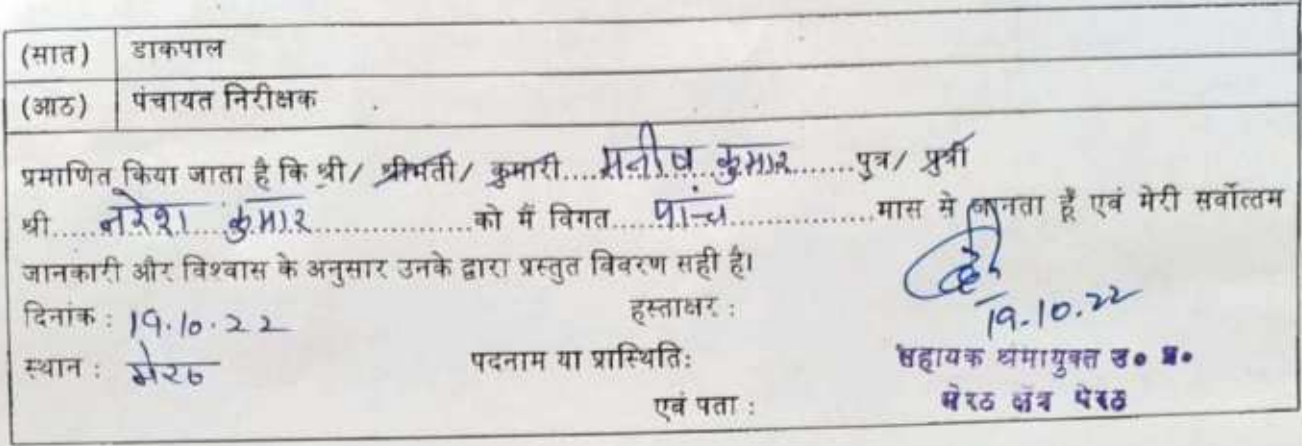 (सात) डाकपाल
(आठ) पंचायत निरीक्षक
प्रमाणित किया जाता है कि श्री/ श्रीमती/ कुमारी....मनीष कुमार.......पुत्र/ पुत्री
श्री.....नरेश कुमार.................को मैं विगत....पांच...............मास से जानता हूँ एवं मेरी सर्वोत्तम
जानकारी और विश्वास के अनुसार उनके द्वारा प्रस्तुत विवरण सही है।
दिनांक : 19.10.22 हस्ताक्षर : 19.10.22
स्थान : मेरठ पदनाम या प्रास्थिति: सहायक श्रमायुक्त उ० प्र०
एवं पता : मेरठ क्षेत्र मेरठ